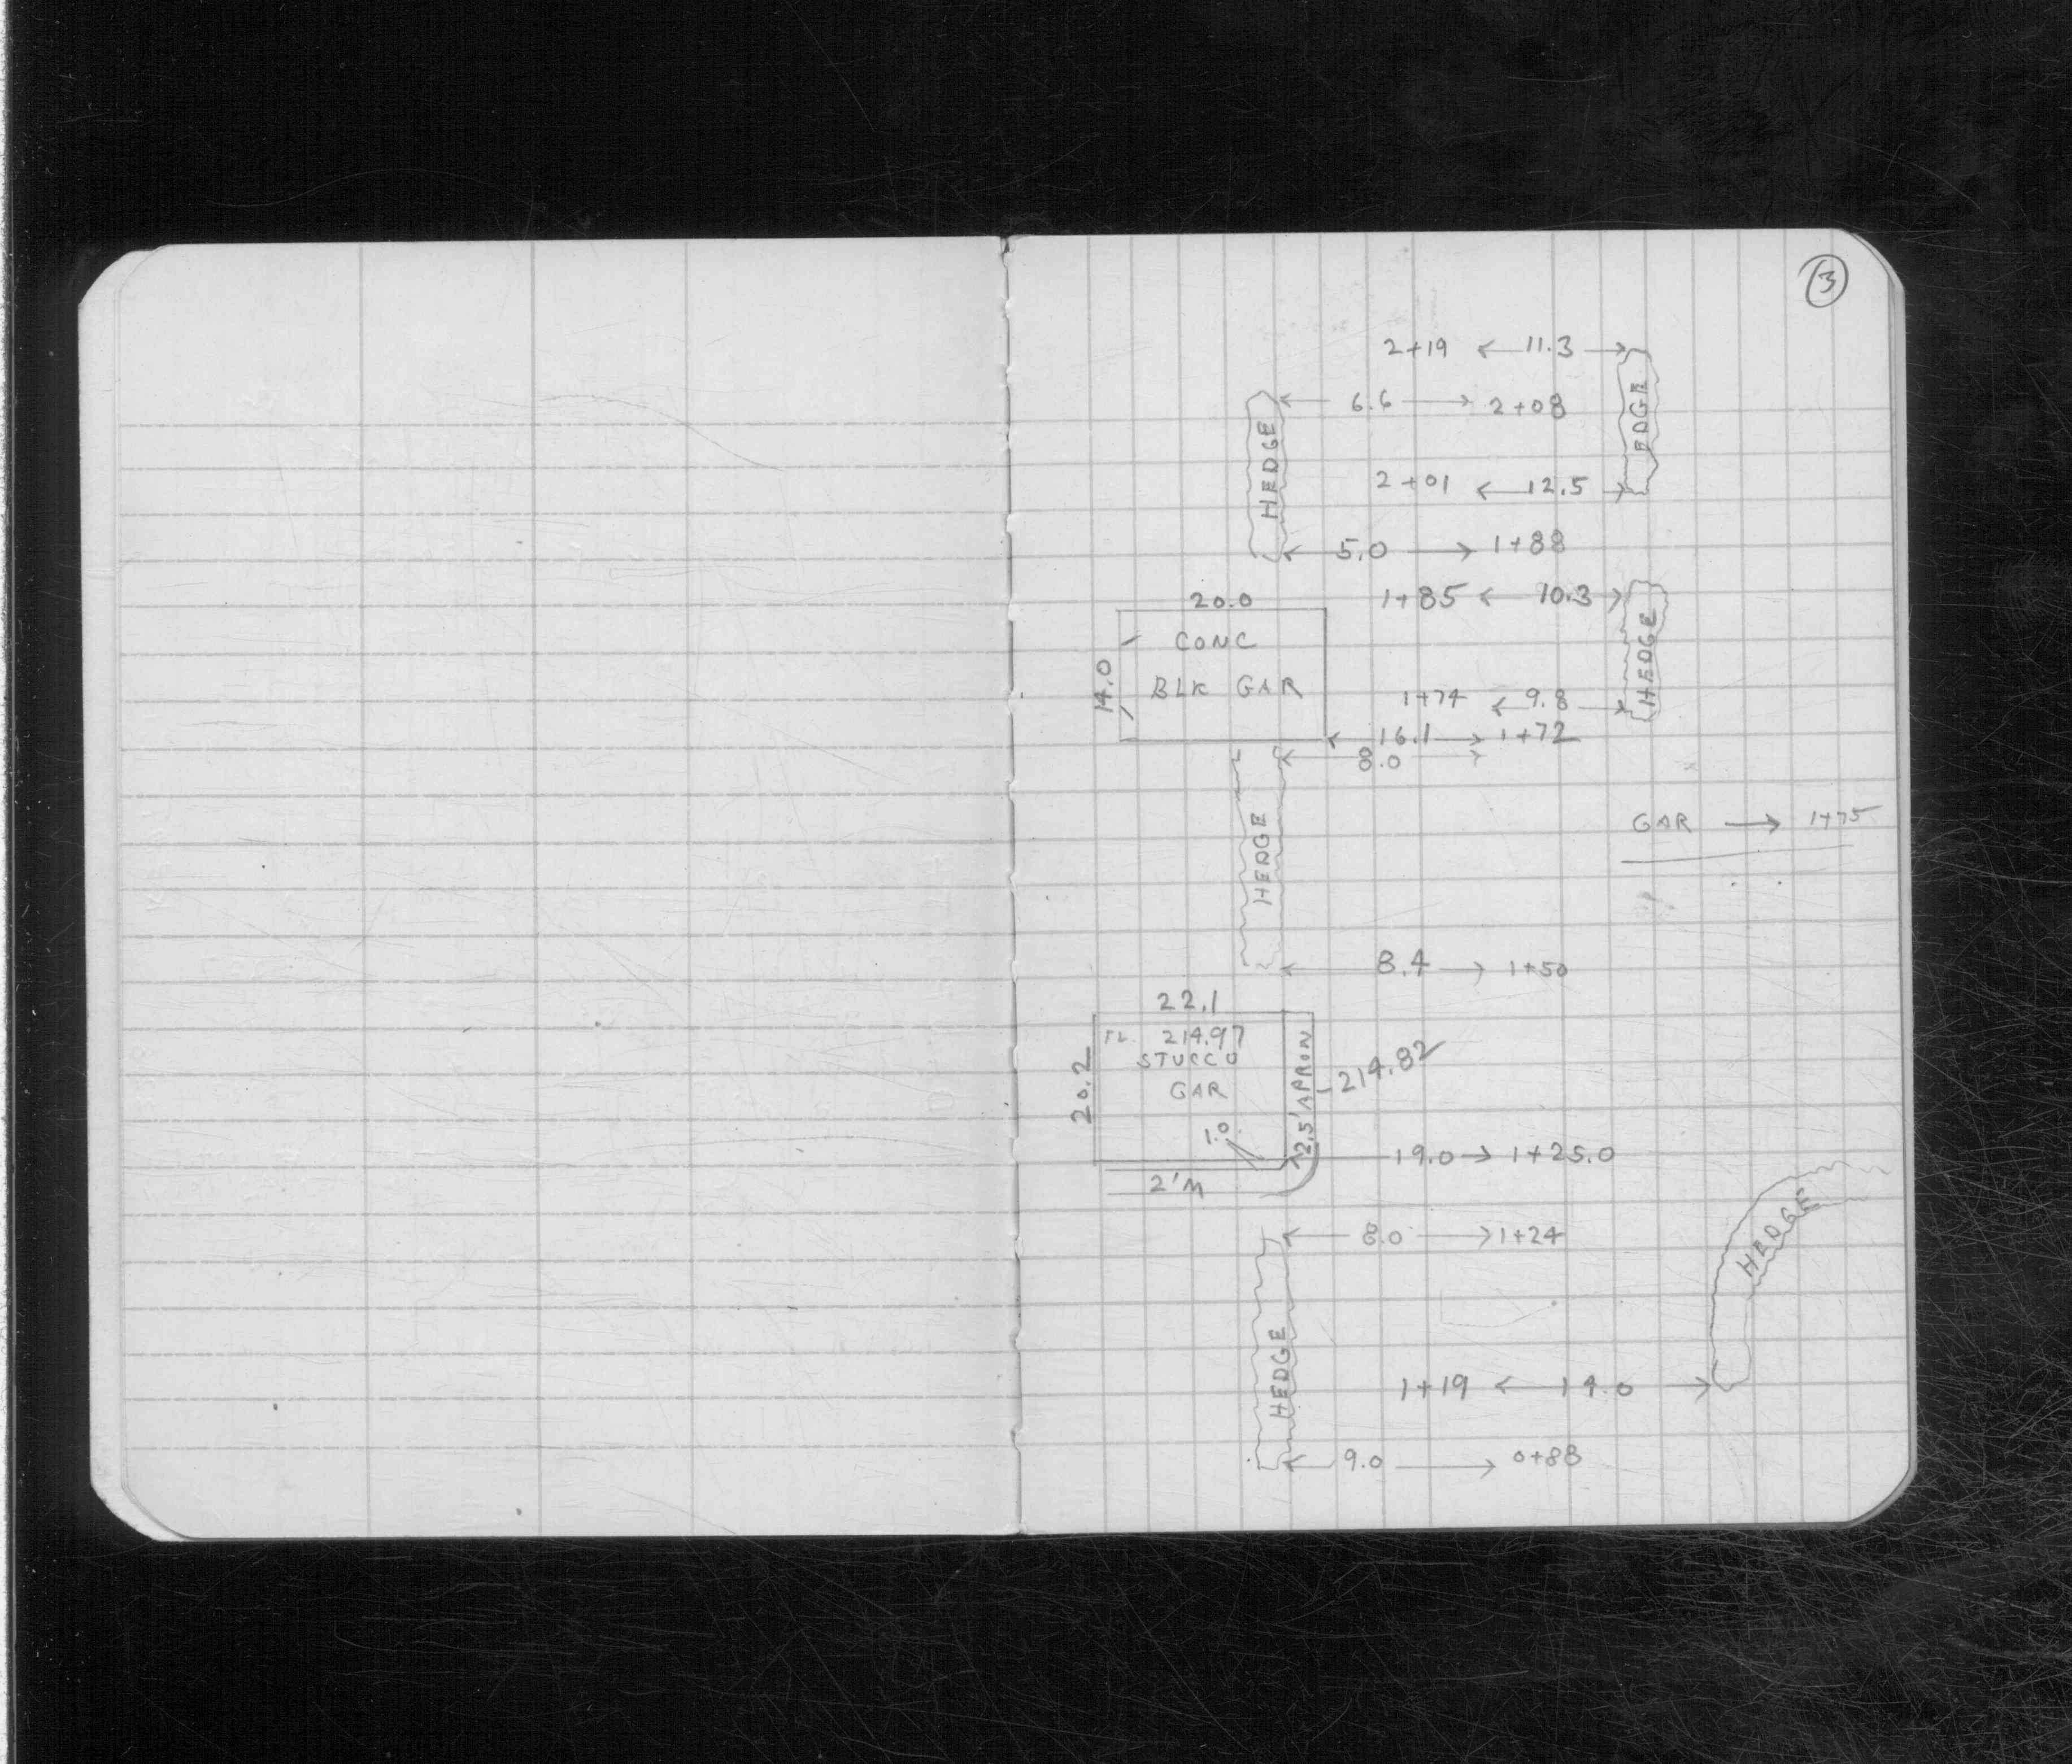 3
2+19 ← 11.3 →
← 6.6 → 2+08
HEDGE
EDGE
2+01 ← 12.5 →
← 5.0 → 1+88
20.0
1+85 ← 10.3 →
CONC
BLK GAR
14.0
HEDGE
1+74 ← 9.8 →
← 16.1 → 1+72
← 8.0 →
HEDGE
GAR → 1+75
← 8.4 → 1+50
22.1
214.97
STUCCO
GAR
20.2
2.5' APRON
214.82
1.0
← 19.0 → 1+25.0
2'M
← 8.0 → 1+24
HEDGE
HEDGE
1+19 ← 14.0 →
← 9.0 → 0+88